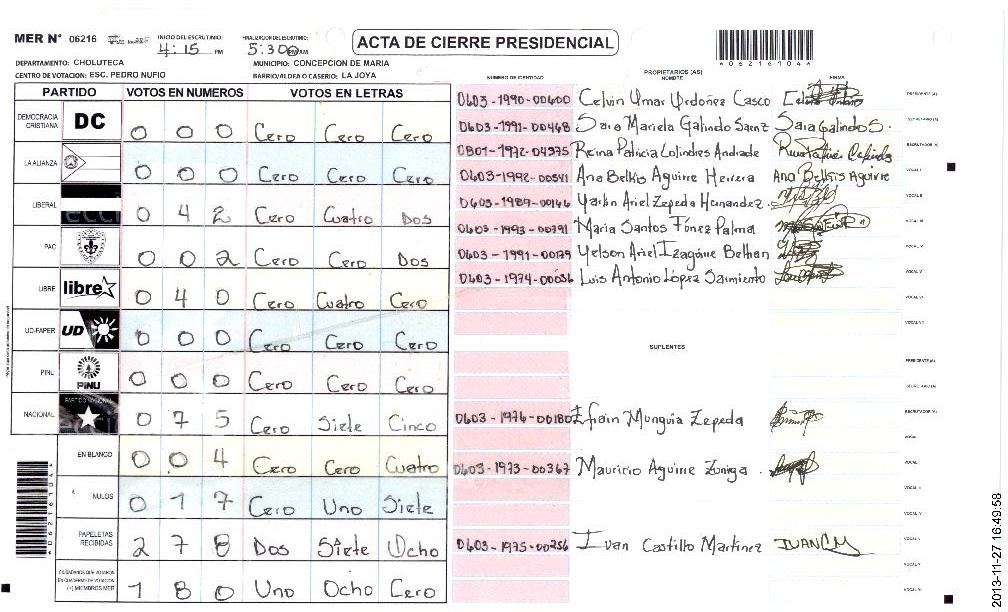 MER N° 06216 INICIO DEL ESCRUTINIO: 4:15 PM FINALIZACION DEL ESCRUTINIO: 5:30 PM/AM
ACTA DE CIERRE PRESIDENCIAL
*06216104*
DEPARTAMENTO: CHOLUTECA MUNICIPIO: CONCEPCION DE MARIA
CENTRO DE VOTACION: ESC. PEDRO NUFIO BARRIO/ALDEA O CASERIO: LA JOYA
PARTIDO VOTOS EN NUMEROS VOTOS EN LETRAS
DEMOCRACIA CRISTIANA DC 0 0 0 Cero Cero Cero
LA ALIANZA 0 0 0 Cero Cero Cero
LIBERAL 0 4 2 Cero Cuatro Dos
PAC 0 0 2 Cero Cero Dos
LIBRE libre 0 4 0 Cero Cuatro Cero
UD-FAPER UD 0 0 0 Cero Cero Cero
PINU PINU 0 0 0 Cero Cero Cero
NACIONAL PARTIDO NACIONAL 0 7 5 Cero Siete Cinco
EN BLANCO 0 0 4 Cero Cero Cuatro
NULOS 0 1 7 Cero Uno Siete
PAPELETAS RECIBIDAS 2 7 8 Dos Siete Ocho
CIUDADANOS QUE VOTARON EN CUADERNO DE VOTACION (+) MIEMBROS MER 1 8 0 Uno Ocho Cero
NUMERO DE IDENTIDAD PROPIETARIOS (AS) NOMBRE FIRMA
0603-1990-00600 Celvin Omar Ordoñez Casco PRESIDENTE (A)
0603-1991-00468 Sara Mariela Galindo Saenz Sara Galindo S. SECRETARIO (A)
0801-1972-04975 Reina Patricia Colindres Andrade ESCRUTADOR (A)
0603-1992-00541 Ana Belkis Aguirre Herrera Ana Belkis Aguirre VOCAL I
0603-1989-00166 Yarkin Ariel Zepeda Hernandez. VOCAL II
0603-1993-00791 Maria Santos Fúnez Palma VOCAL III
0603-1991-00179 Yelson Ariel Izaguirre Bethan VOCAL IV
0603-1974-00056 Luis Antonio López Sarmiento VOCAL V
VOCAL VI
VOCAL VII
SUPLENTES
PRESIDENTE (A)
SECRETARIO (A)
0603-1976-00180 Efrain Munguia Zepeda ESCRUTADOR (A)
VOCAL
0603-1973-00367 Mauricio Aguirre Zuniga. VOCAL
VOCAL
VOCAL
0603-1975-00256 Ivan Castillo Martinez IVAN C.M VOCAL
VOCAL
VOCAL
*06216104*
2013-11-27 16:49:58